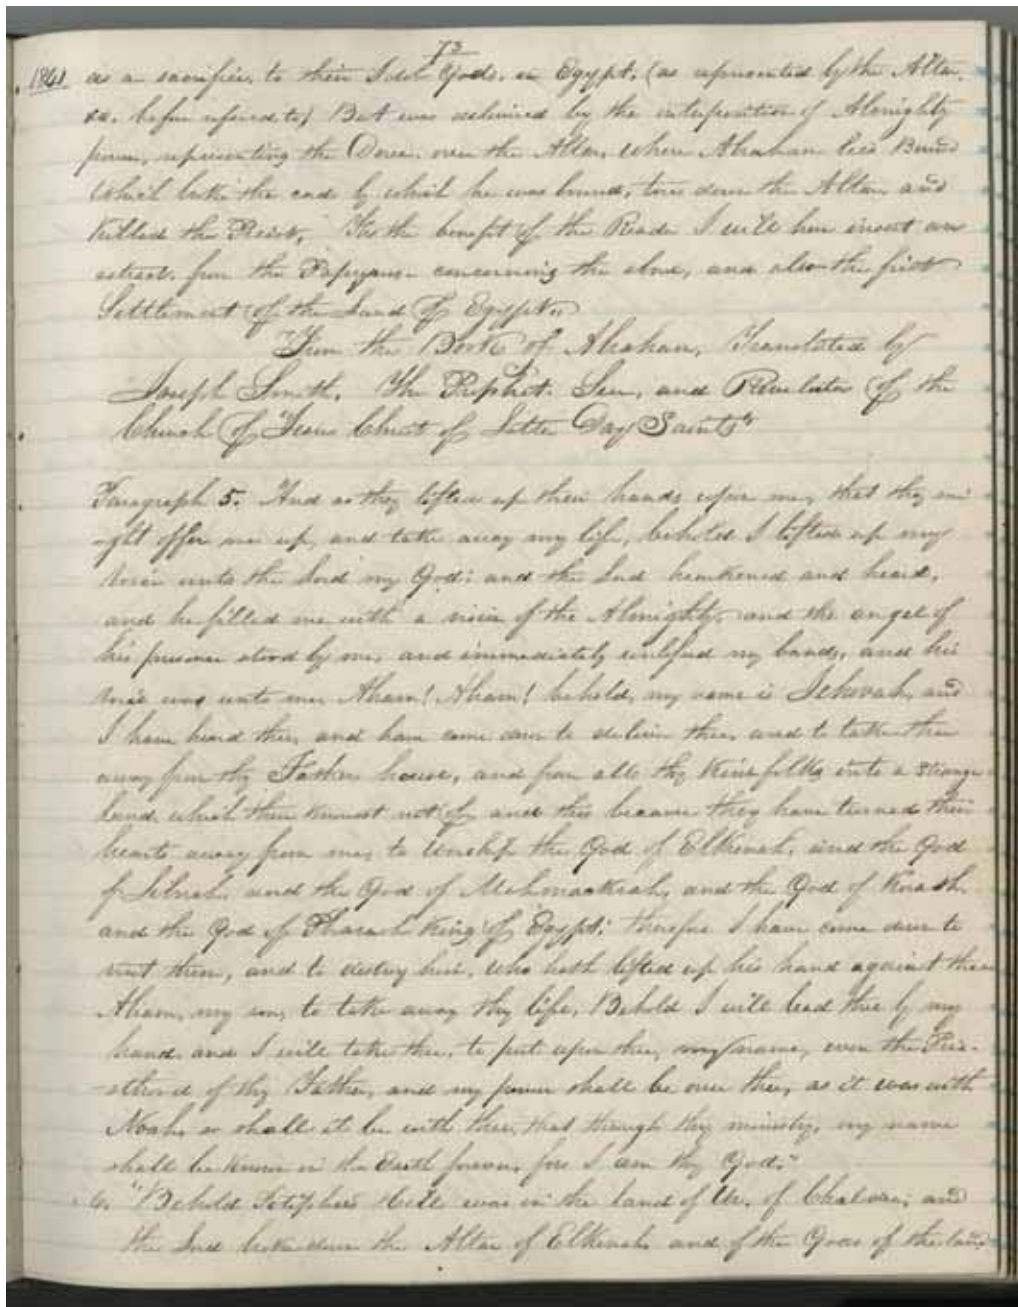 73
1841 as a sacrifice, to their Idol Gods, in Egypt, (as represented by the Altar,
&c. before refered to) But was delivered by the interposition of Almighty
power, representing the Dove over the Altar, where Abraham lies Bound
Which broke the cord by which he was bound, tore down the Altar and
Killed the Priest, For the benefit of the Reader I will here insert an
extract from the Papyrus concerning the above, and also the first
Settlement of the Land of Egypt.
"From the Book of Abraham, Translated by
Joseph Smith, The Prophet. Seer, and Revelator of the
Church of Jesus Christ of Latter Day Saints"
Paragraph 5. And as they lifted up their hands upon me, that they mi
-ght offer me up, and take away my life, behold I lifted up my
voice unto the Lord my God; and the Lord hearkened and heard,
and he filled me with a vision of the Almighty, and the angel of
his presence stood by me, and immediately unloosed my bands, and his
voice was unto me, Abram! Abram! behold, my name is Jehovah, and
I have heard thee, and have come down to deliver thee, and to take thee
away from thy Fathers house, and from all thy kinsfolks into a strange
land, which thou knowest not of, and this because they have turned their
hearts away from me, to Worship the God of Elkenah, and the God
of Libnah, and the God of Mahmackrah, and the God of Korash,
and the God of Pharaoh King of Egypt: therefore I have come down to
visit them, and to destroy him, who hath lifted up his hand against thee
Abram, my son, to take away thy life, Behold I will lead thee by my
hand, and I will take thee, to put upon thee, my name, even the Prie-
-sthood of thy Father, and my power shall be over thee, as it was with
Noah, so shall it be with thee, that through thy ministry, my name
shall be known in the Earth forever, for I am thy God."
6. "Behold Potiphers Hill was in the land of Ur, of Chaldea; and
the Lord broke down the Altar of Elkenah, and of the Gods of the land,